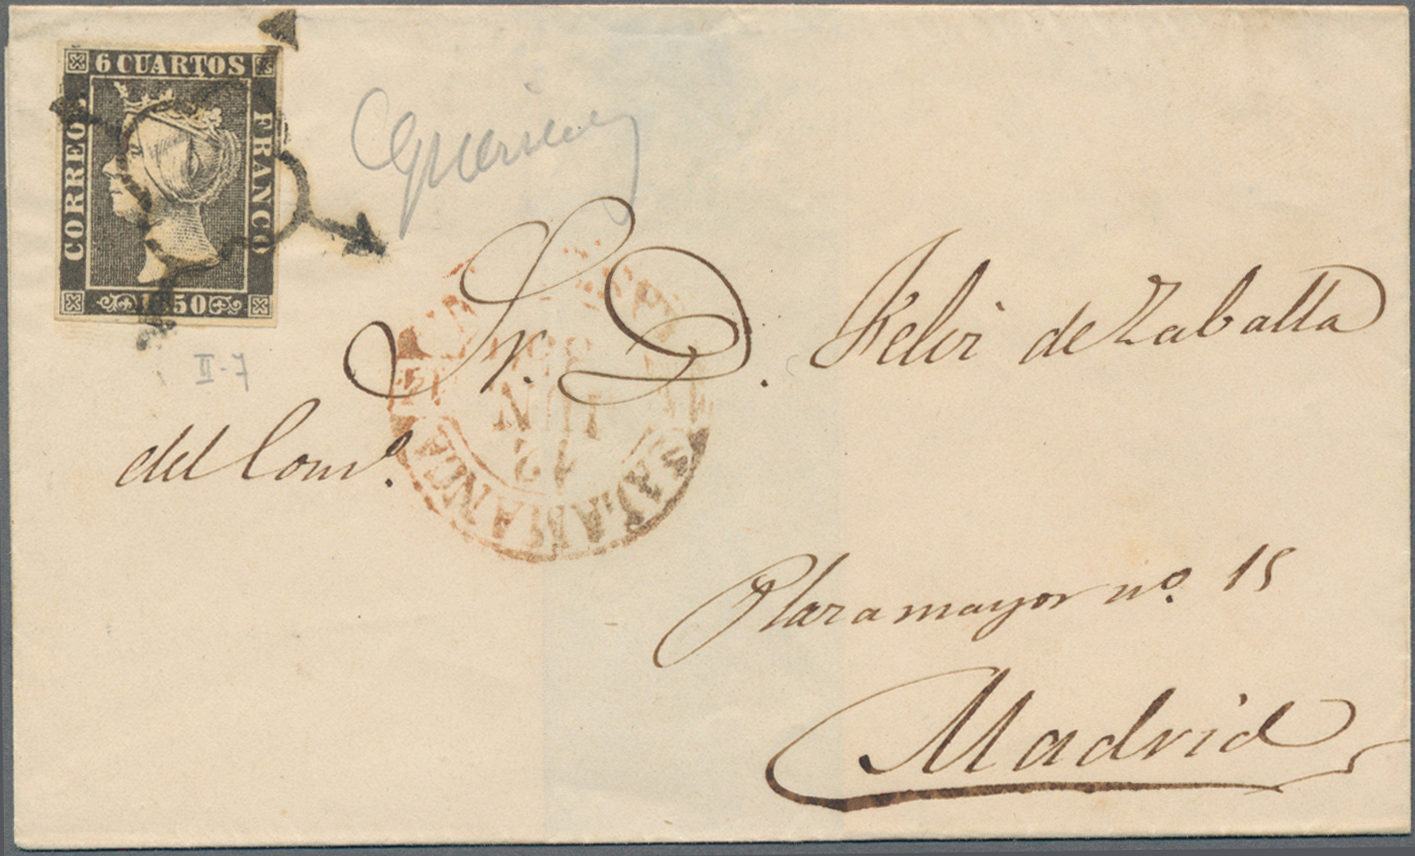 6 CUARTOS
CORREOS
FRANCO
1850
II-7
Sr. D. Felix de Zaballa
del Comº.
SALAMANCA
JUN
Plaza mayor nº. 15
Madrid